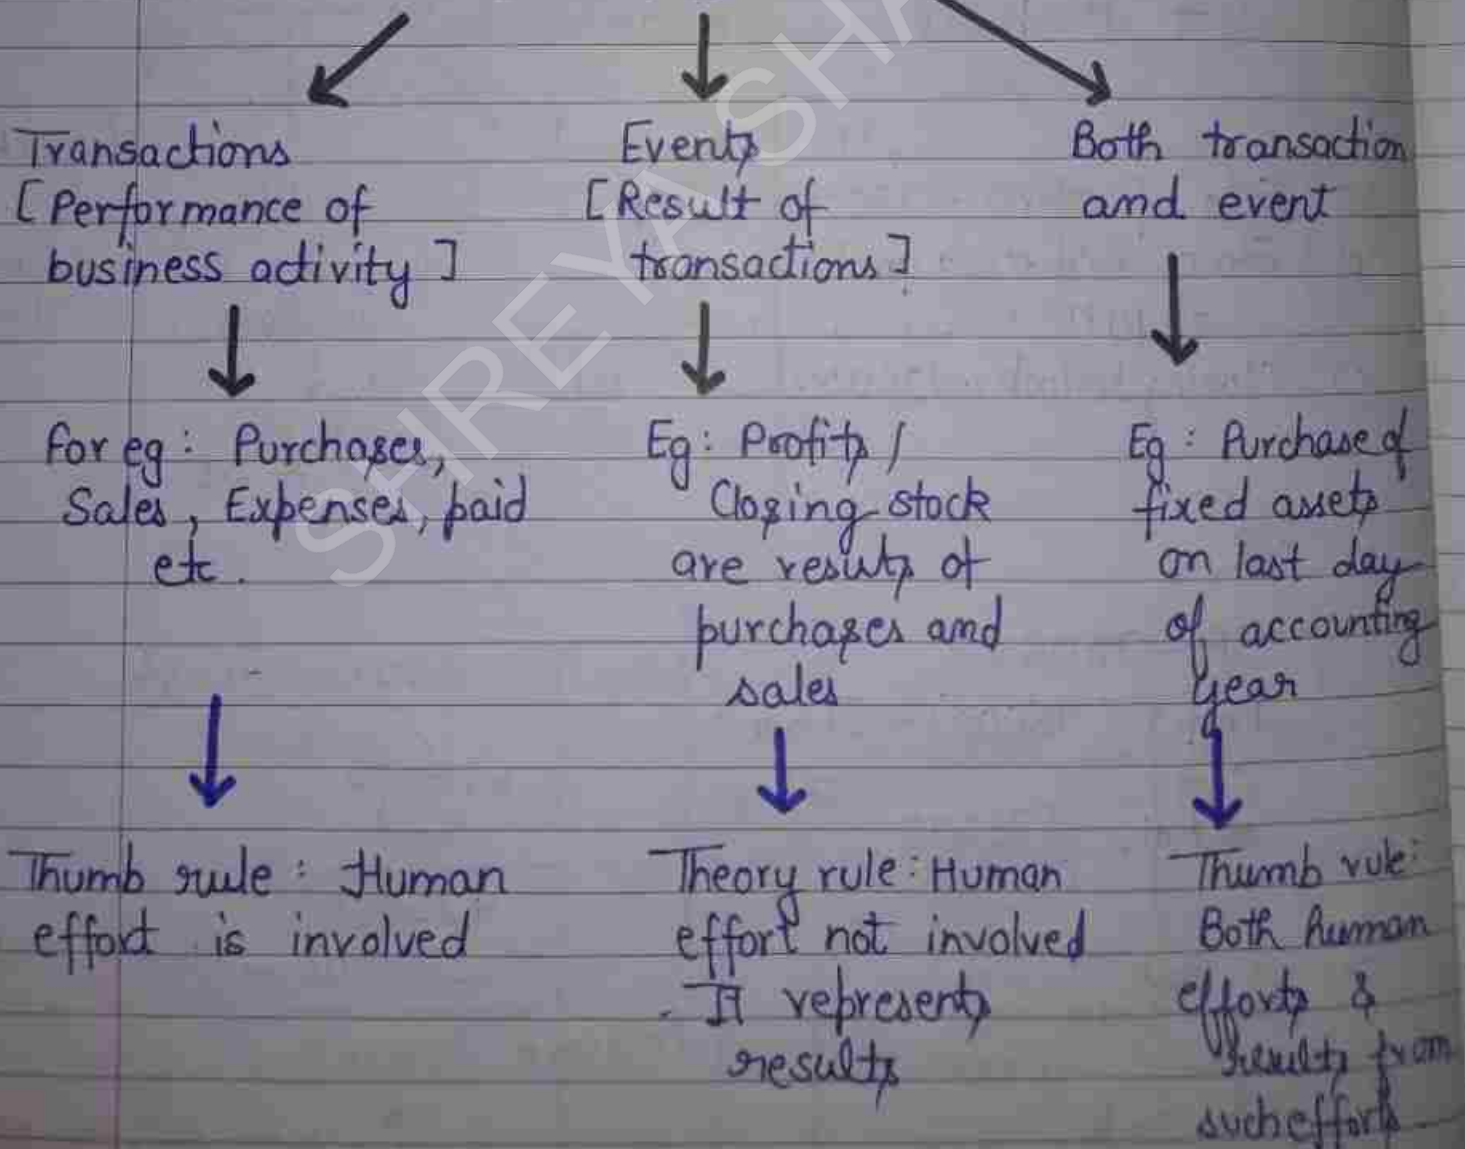 Transactions
[Performance of
business activity]
for eg: Purchases,
Sales, Expenses, paid
etc.
Thumb rule: Human
effort is involved
Events
[Result of
transactions]
Eg: Profits /
Closing stock
are results of
purchases and
sales
Theory rule: Human
effort not involved
. It represents
results
Both transaction
and event
Eg: Purchase of
fixed assets
on last day
of accounting
year
Thumb rule:
Both human
efforts &
results from
such efforts
SHREYA SHA